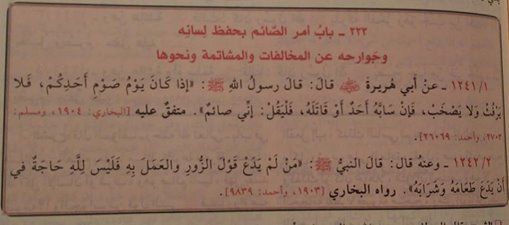 ٢٢٣ - بابُ أمر الصَّائم بحفظ لِسانِه
وجَوارحِه عن المخالفات والمشاتمة ونحوها
١٢٤١/١ - عنْ أبي هُريرةَ ﷺ قالَ: قالَ رسولُ اللهِ ﷺ: «إذا كَانَ يَوْمُ صَوْمِ أَحَدِكُمْ، فَلا
يَرْفُثْ وَلا يَصْخَبْ، فَإنْ سَابَّهُ أَحَدٌ أَوْ قَاتَلَهُ، فَلْيَقُلْ: إنِّي صائمٌ». متفقٌ عليه [البخاري: ١٩٠٤، ومسلم:
٢٧٠٦، وأحمد: ٢٦٠٦٩].
١٢٤٢/٢ - وعنهُ قالَ: قال النبيُّ ﷺ: «مَنْ لَمْ يَدَعْ قَوْلَ الزُّورِ والعَمَلَ بِهِ فَلَيْسَ لِلَّهِ حَاجَةٌ في
أَنْ يَدَعَ طَعَامَهُ وَشَرَابَهُ». رواه البخاري [١٩٠٣، وأحمد: ٩٨٣٩].